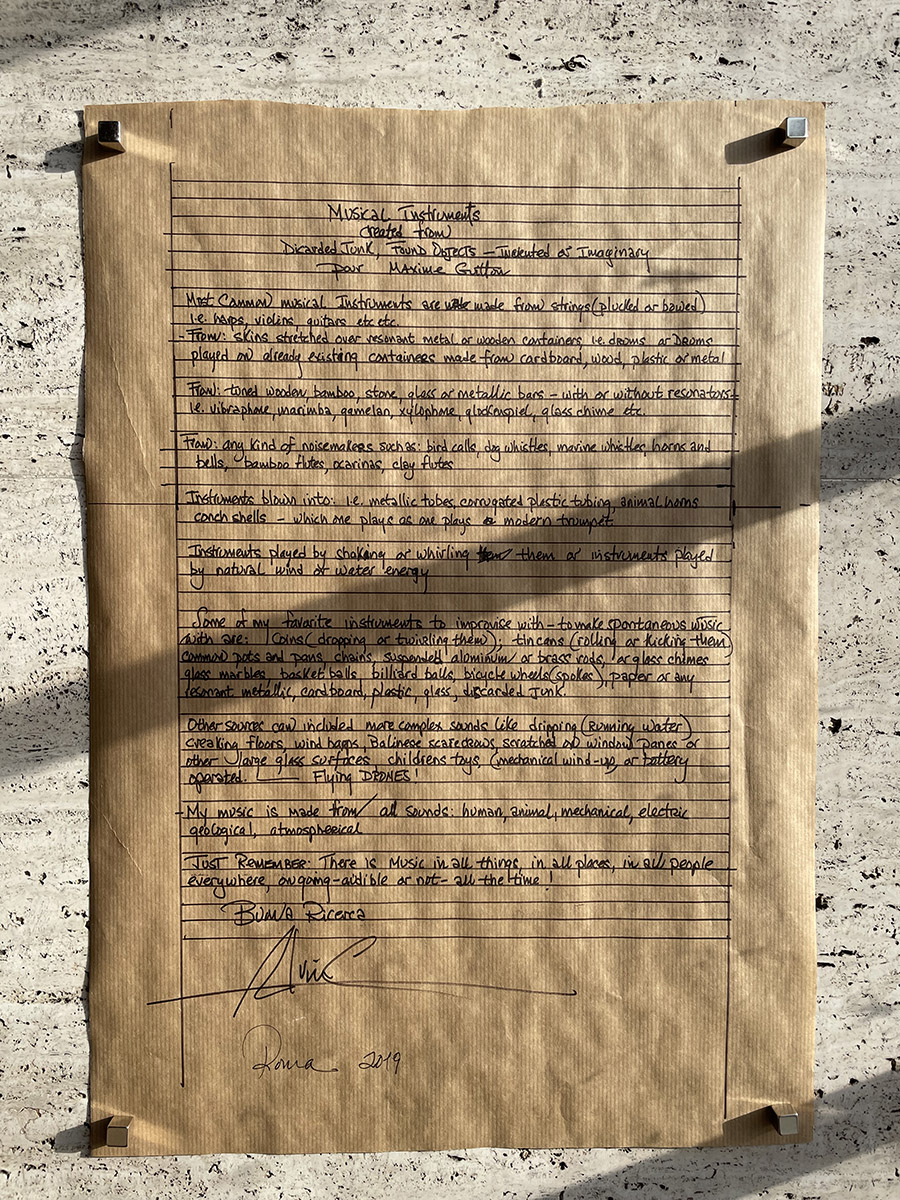 Musical Instruments
created from
Dicarded Junk, Found Objects – Invented or Imaginary
pour Maxime Guitton
Most Common musical Instruments are made from strings (plucked or bowed)
i.e. harps, violins, guitars etc etc.
- From: skins stretched over resonant metal or wooden containers, i.e. drums or Drums
played on already existing containers made from cardboard, wood, plastic or metal
From: tuned wooden bamboo, stone, glass or metallic bars – with or without resonators-
i.e. vibraphone, marimba, gamelan, xylophone, glockenspiel, glass chime etc.
From: any kind of noisemakers such as: bird calls, dog whistles, marine whistles horns and
bells, bamboo flutes, ocarinas, clay flutes
Instruments blown into: i.e. metallic tubes, corrugated plastic tubing, animal horns
conch shells – which one plays as one plays a modern trumpet
Instruments played by shaking or whirling them or instruments played
by natural wind or water energy
Some of my favorite instruments to improvise with – to make spontaneous music
with are: Coins (dropping or twirling them); tin cans (rolling or kicking them)
common pots and pans, chains, suspended aluminum or brass rods, or glass chimes
glass marbles, basket balls, billiard balls, bicycle wheels (spokes), paper or any
resonant metallic, cardboard, plastic, glass, discarded junk.
Other sources can included more complex sounds like dripping (running water)
creaking floors, wind harps, Balinese scarecrows, scratched on window panes or
other large glass surfaces, childrens toys, (mechanical wind-up, or battery
operated. Flying DRONES!
- My music is made from all sounds: human, animal, mechanical, electric
geological, atmospherical
JUST REMEMBER: There is Music in all things, in all places, in all people
everywhere, ongoing – audible or not – all the time!
Buona Ricerca
Roma 2019